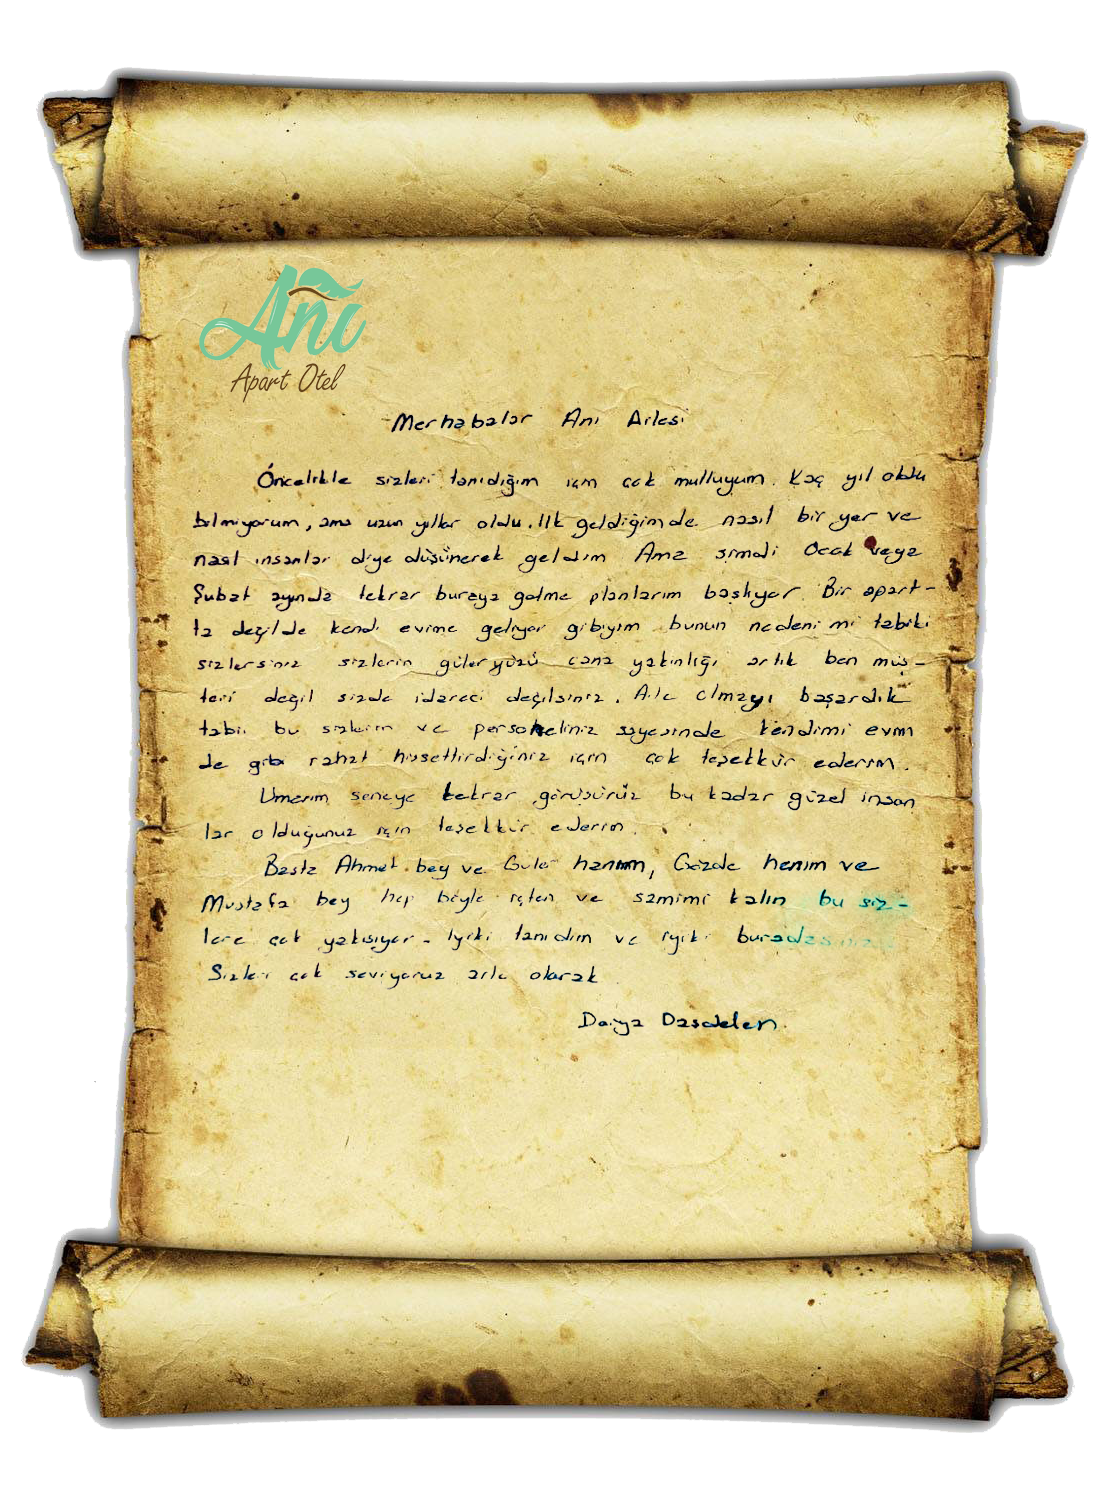 Anı
Apart Otel
Merhabalar Anı Ailesi
Öncelikle sizleri tanıdığım için çok mutluyum. Kaç yıl oldu
bilmiyorum, ama uzun yıllar oldu. İlk geldiğimde nasıl bir yer ve
nasıl insanlar diye düşünerek geldim Ama şimdi Ocak veya
Şubat ayında tekrar buraya gelme planlarım başlıyor Bir apart-
ta değilde kendi evime geliyor gibiyim bunun nedeni mi tabiki
sizlersiniz sizlerin güleryüzü cana yakınlığı artık ben müş-
teri değil sizde idareci değilsiniz. Aile olmayı başardık
tabii bu sizlerin ve personeliniz sayesinde kendimi evim
de gibi rahat hissettirdiğiniz için çok teşekkür ederim.
Umarım seneye tekrar görüşürüz bu kadar güzel insan
lar olduğunuz için teşekkür ederim.
Başta Ahmet bey ve hanım, Gözde hanım ve
Mustafa bey hep böyle içten ve samimi kalın bu siz-
lere çok yakışıyor. İyiki tanıdım ve iyiki buradasınız
Sizleri çok seviyoruz aile olarak
Daşdelen